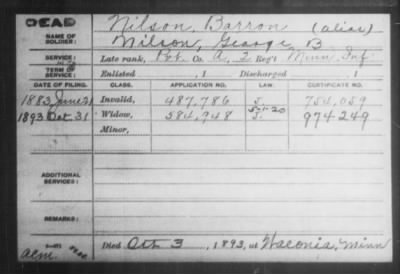 DEAD
NAME OF SOLDIER:
Nilson, Barron (alias)
Wilson, George B.
SERVICE:
Late rank, Pvt. Co. A, 2 Reg't Minn. Inf.
TERM OF SERVICE:
Enlisted , 1 Discharged , 1
DATE OF FILING. CLASS. APPLICATION NO. LAW. CERTIFICATE NO.
1883 June 21 Invalid, 487,786 754,059
1893 Oct. 31 Widow, 584,948 974249
Minor,
ADDITIONAL SERVICES:
REMARKS:
Died Oct 3, 1893, at Waconia, Minn